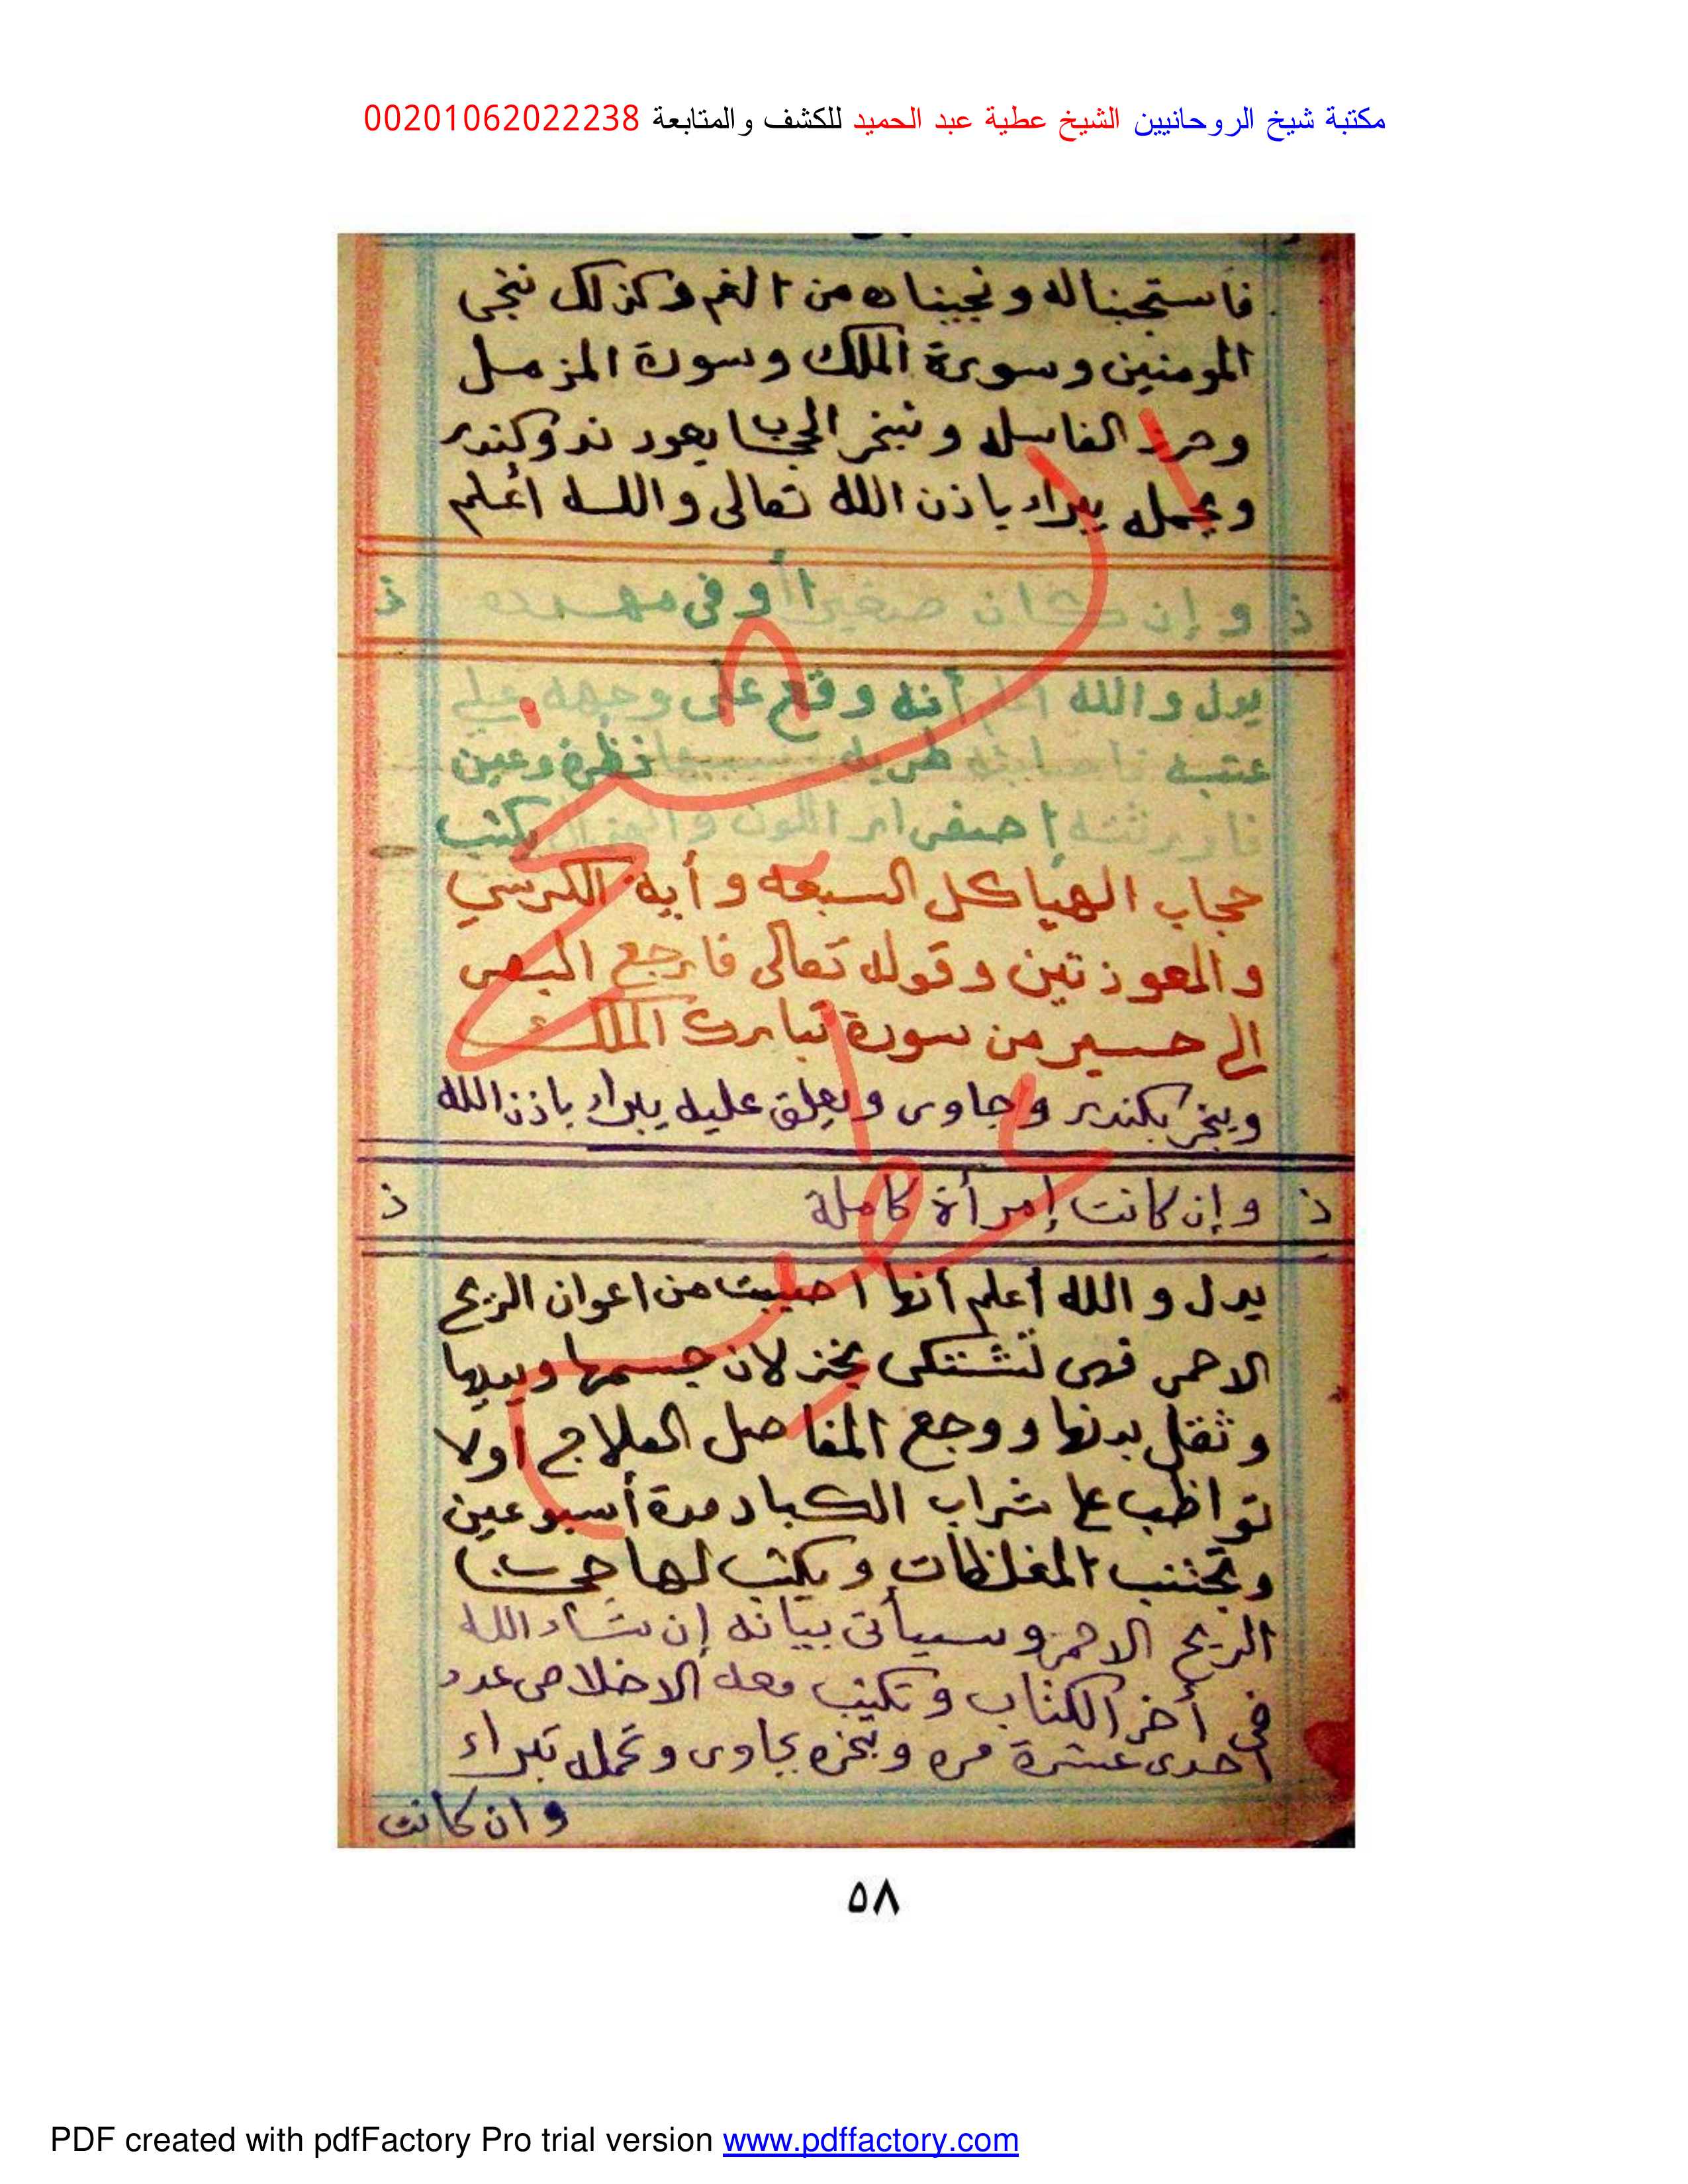 مكتبة شيخ الروحانيين الشيخ عطية عبد الحميد للكشف والمتابعة 00201062022238
فاستجبناله ونجيناه من الغم وكذلك ننجى
المومنين وسورة الملك وسورة المزمل
وحرز الفاسله وتبخر الحجاب بعود ند وكندر
ويحمله يبراء باذن الله تعالى والله أعلم
ذ وإن كان صغيرا أو فى مهده ذ
يدل والله اعلم أنه وقع على وجهه على
عتبه فاصابته طربه سببها نظرة وعين
فاورثته إصفرار اللون والهزال يكتب
حجاب الهياكل السبعه وأية الكرسي
والمعوذتين وقوله تعالى فارجع البصر
الى حسير من سورة تبارك الملك
ويبخر بكندر وجاوى ويعلق عليه يبراء باذن الله
ذ وإن كانت إمرأة كاملة ذ
يدل والله أعلم أنها اصيبت من اعوان الريح
الاحمر فهى تشتكى بخذلان جسمها ويديها
وثقل بدنها ووجع المفاصل العلاج اولا
تواظب على شراب الكباد مدة أسبوعين
وتجتنب المغلظات ويكتب لها حجاب
الريح الاحمر وسيأتى بيانه إن شاء الله
فى أخر الكتاب وتكتب معه الاخلاص عدد
احدى عشرة مره وتبخره بجاوى وتحمله تبراء
وان كانت
٥٨
PDF created with pdfFactory Pro trial version www.pdffactory.com